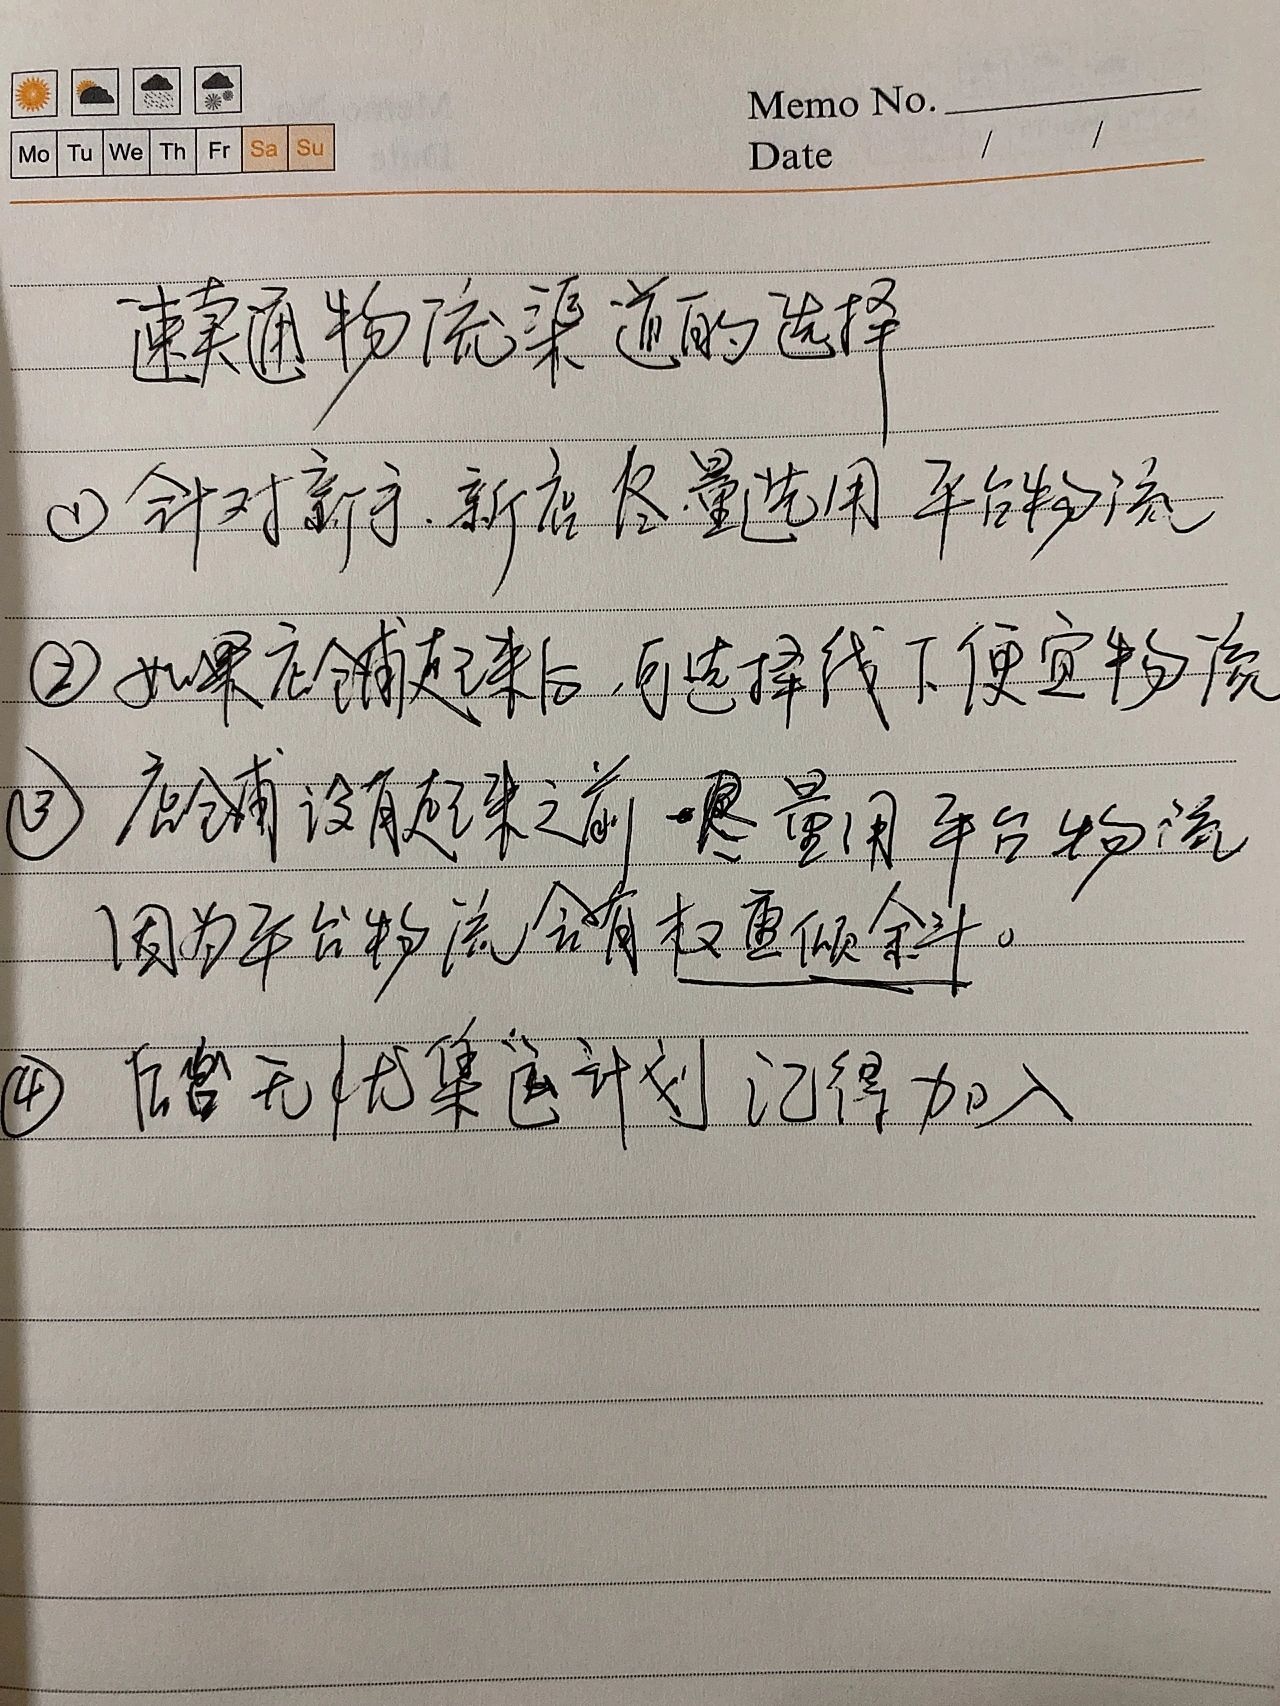 Memo No.
Mo Tu We Th Fr Sa Su
Date / /
速卖通物流渠道的选择
① 针对新手、新店尽量选用平台物流
② 如果店铺起来后，可选择线下便宜物流
③ 店铺没有起来之前 尽量用平台物流
因为平台物流会有权重倾斜。
④ 后台无忧集运计划 记得加入